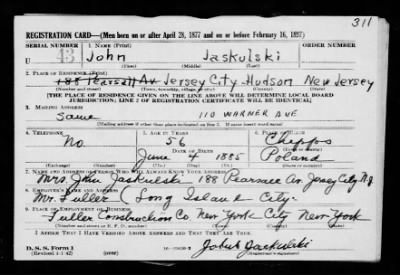 311
REGISTRATION CARD—(Men born on or after April 28, 1877 and on or before February 16, 1897)
SERIAL NUMBER 1. NAME (Print) ORDER NUMBER
U 43 John Jaskulski
(First) (Middle) (Last)
2. PLACE OF RESIDENCE (Print)
188 Pearsall Av Jersey City Hudson New Jersey
(Number and street) (Town, township, village, or city) (County) (State)
[THE PLACE OF RESIDENCE GIVEN ON THE LINE ABOVE WILL DETERMINE LOCAL BOARD
JURISDICTION; LINE 2 OF REGISTRATION CERTIFICATE WILL BE IDENTICAL]
3. MAILING ADDRESS
Same 110 WARNER AVE
[Mailing address if other than place indicated on line 2. If same insert word same]
4. TELEPHONE 5. AGE IN YEARS 6. PLACE OF BIRTH
No 56
DATE OF BIRTH (Town or county)
June 4 1885 Poland
(Exchange) (Number) (Mo.) (Day) (Yr.) (State or country)
7. NAME AND ADDRESS OF PERSON WHO WILL ALWAYS KNOW YOUR ADDRESS
Mrs. John Jaskulski 188 Pearsall Av. Jersey City N.J.
8. EMPLOYER'S NAME AND ADDRESS
Mr. Fuller (Long Island City.
9. PLACE OF EMPLOYMENT OR BUSINESS
Fuller Construction Co New York City New York
(Number and street or R. F. D. number) (Town) (County) (State)
I AFFIRM THAT I HAVE VERIFIED ABOVE ANSWERS AND THAT THEY ARE TRUE.
D. S. S. Form 1
(Revised 4-1-42) (over)
John Jaskulski
(Registrant's signature)